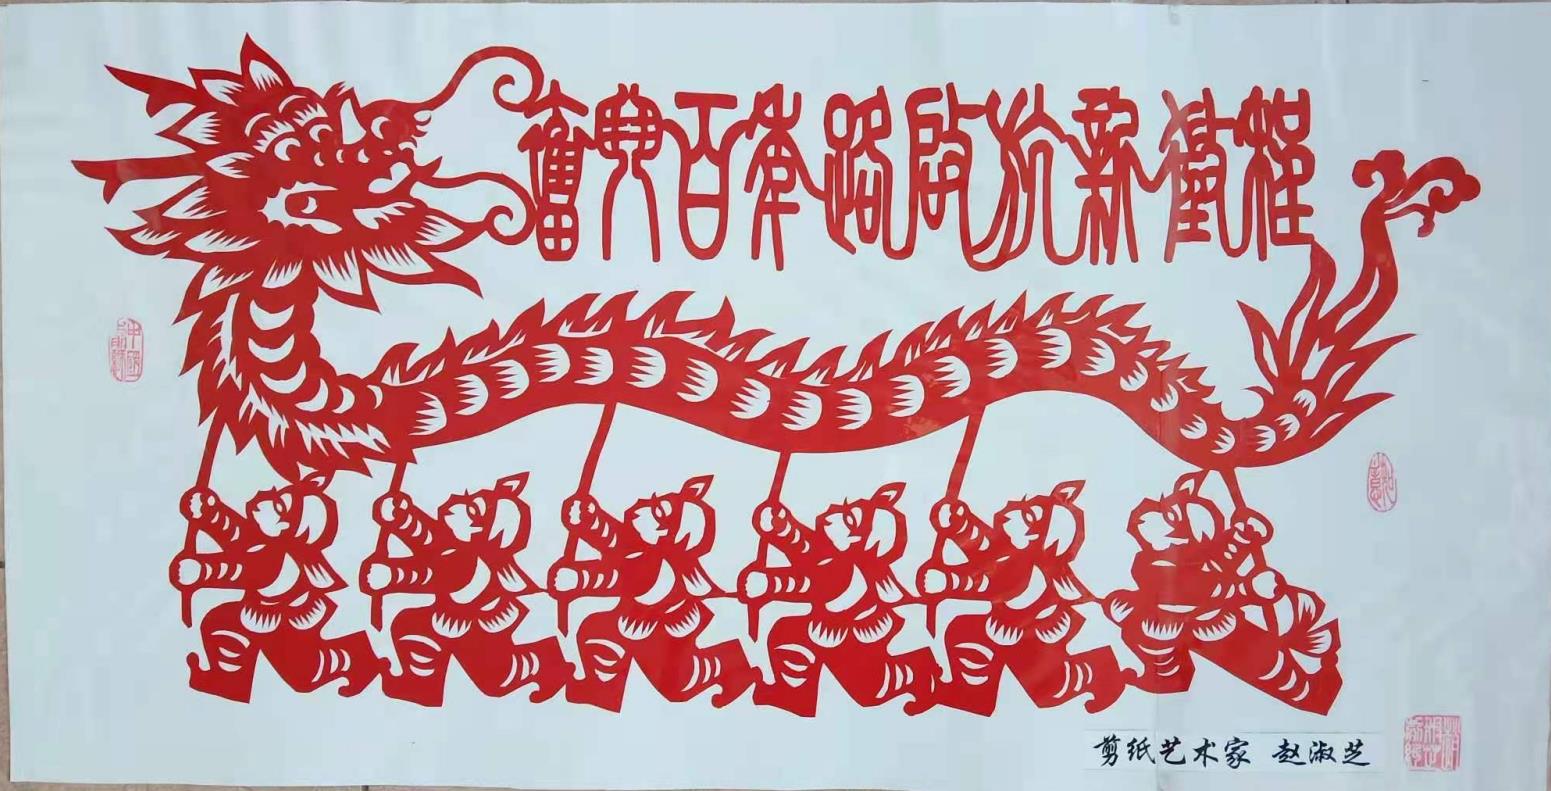 奮鬥百年路啟航新徵程
剪纸艺术家 赵淑芝